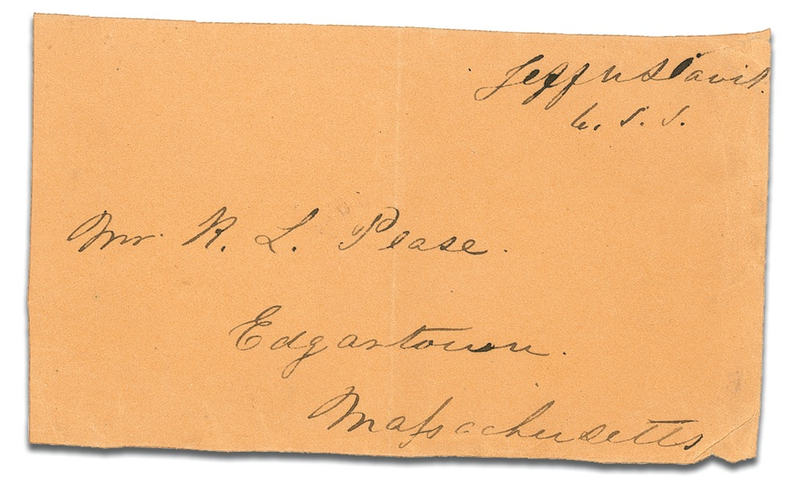 Jeffn Davis
U. S. S.
Mr. R. L. Pease.
Edgartown.
Massachusetts